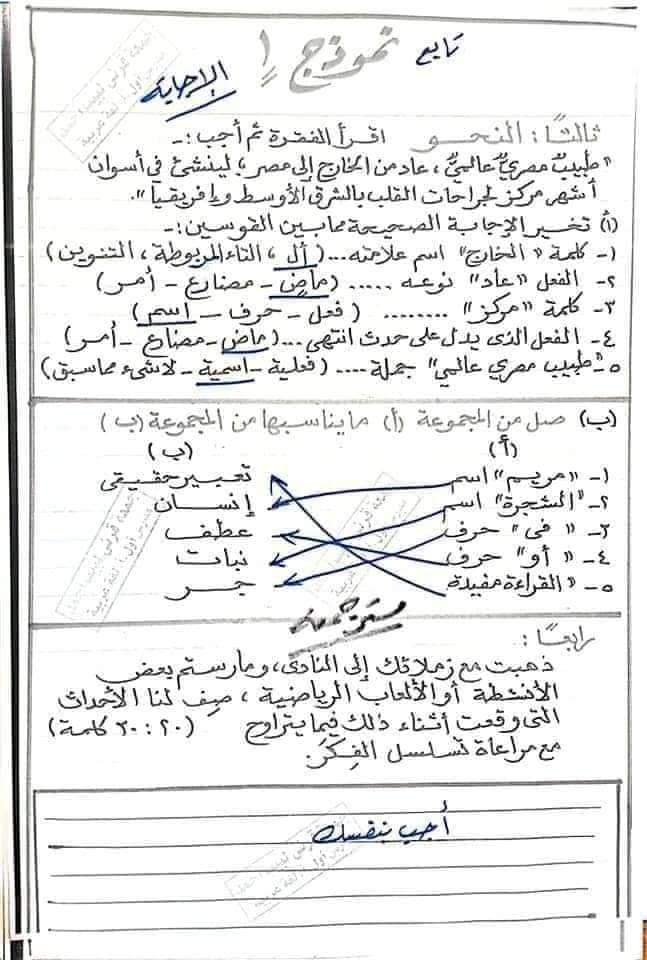 تابع نموذج أ
الإجابة
ثالثًا: النحو اقرأ الفقرة ثم أجب:-
"طبيبٌ مصريٌ عالميٌ، عاد من الخارج إلى مصر؛ لينشئ في أسوان
أشهر مركز لجراحات القلب بالشرق الأوسط وإفريقيا".
(أ) تخير الإجابة الصحيحة مما بين القوسين:-
١- كلمة "الخارج" اسم علامته...(أل، التاء المربوطة، التنوين)
٢- الفعل "عاد" نوعه ..... (ماضٍ - مضارع - أمر)
٣- كلمة "مركز" ........ (فعل - حرف - اسم)
٤- الفعل الذى يدل على حدث انتهى...(ماض - مضارع - أمر)
٥- "طبيب مصري عالمي" جملة .... (فعلية - اسمية - لاشىء مماسبق)
(ب) صل من المجموعة (أ) ما يناسبها من المجموعة (ب)
(أ) (ب)
١- "مريم" اسم تعبير حقيقى
٢- "الشجرة" اسم إنسان
٣- "فى" حرف عطف
٤- "أو" حرف نبات
٥- "القراءة مفيدة جر
رابعًا:
ذهبت مع زملائك إلى النادى، ومارستم بعض
الأنشطة أو الألعاب الرياضية، صِف لنا الأحداث
التى وقعت أثناء ذلك فيما يتراوح (٢٠:٣٠ كلمة)
مع مراعاة تسلسل الفِكَر.
أجب بنفسك